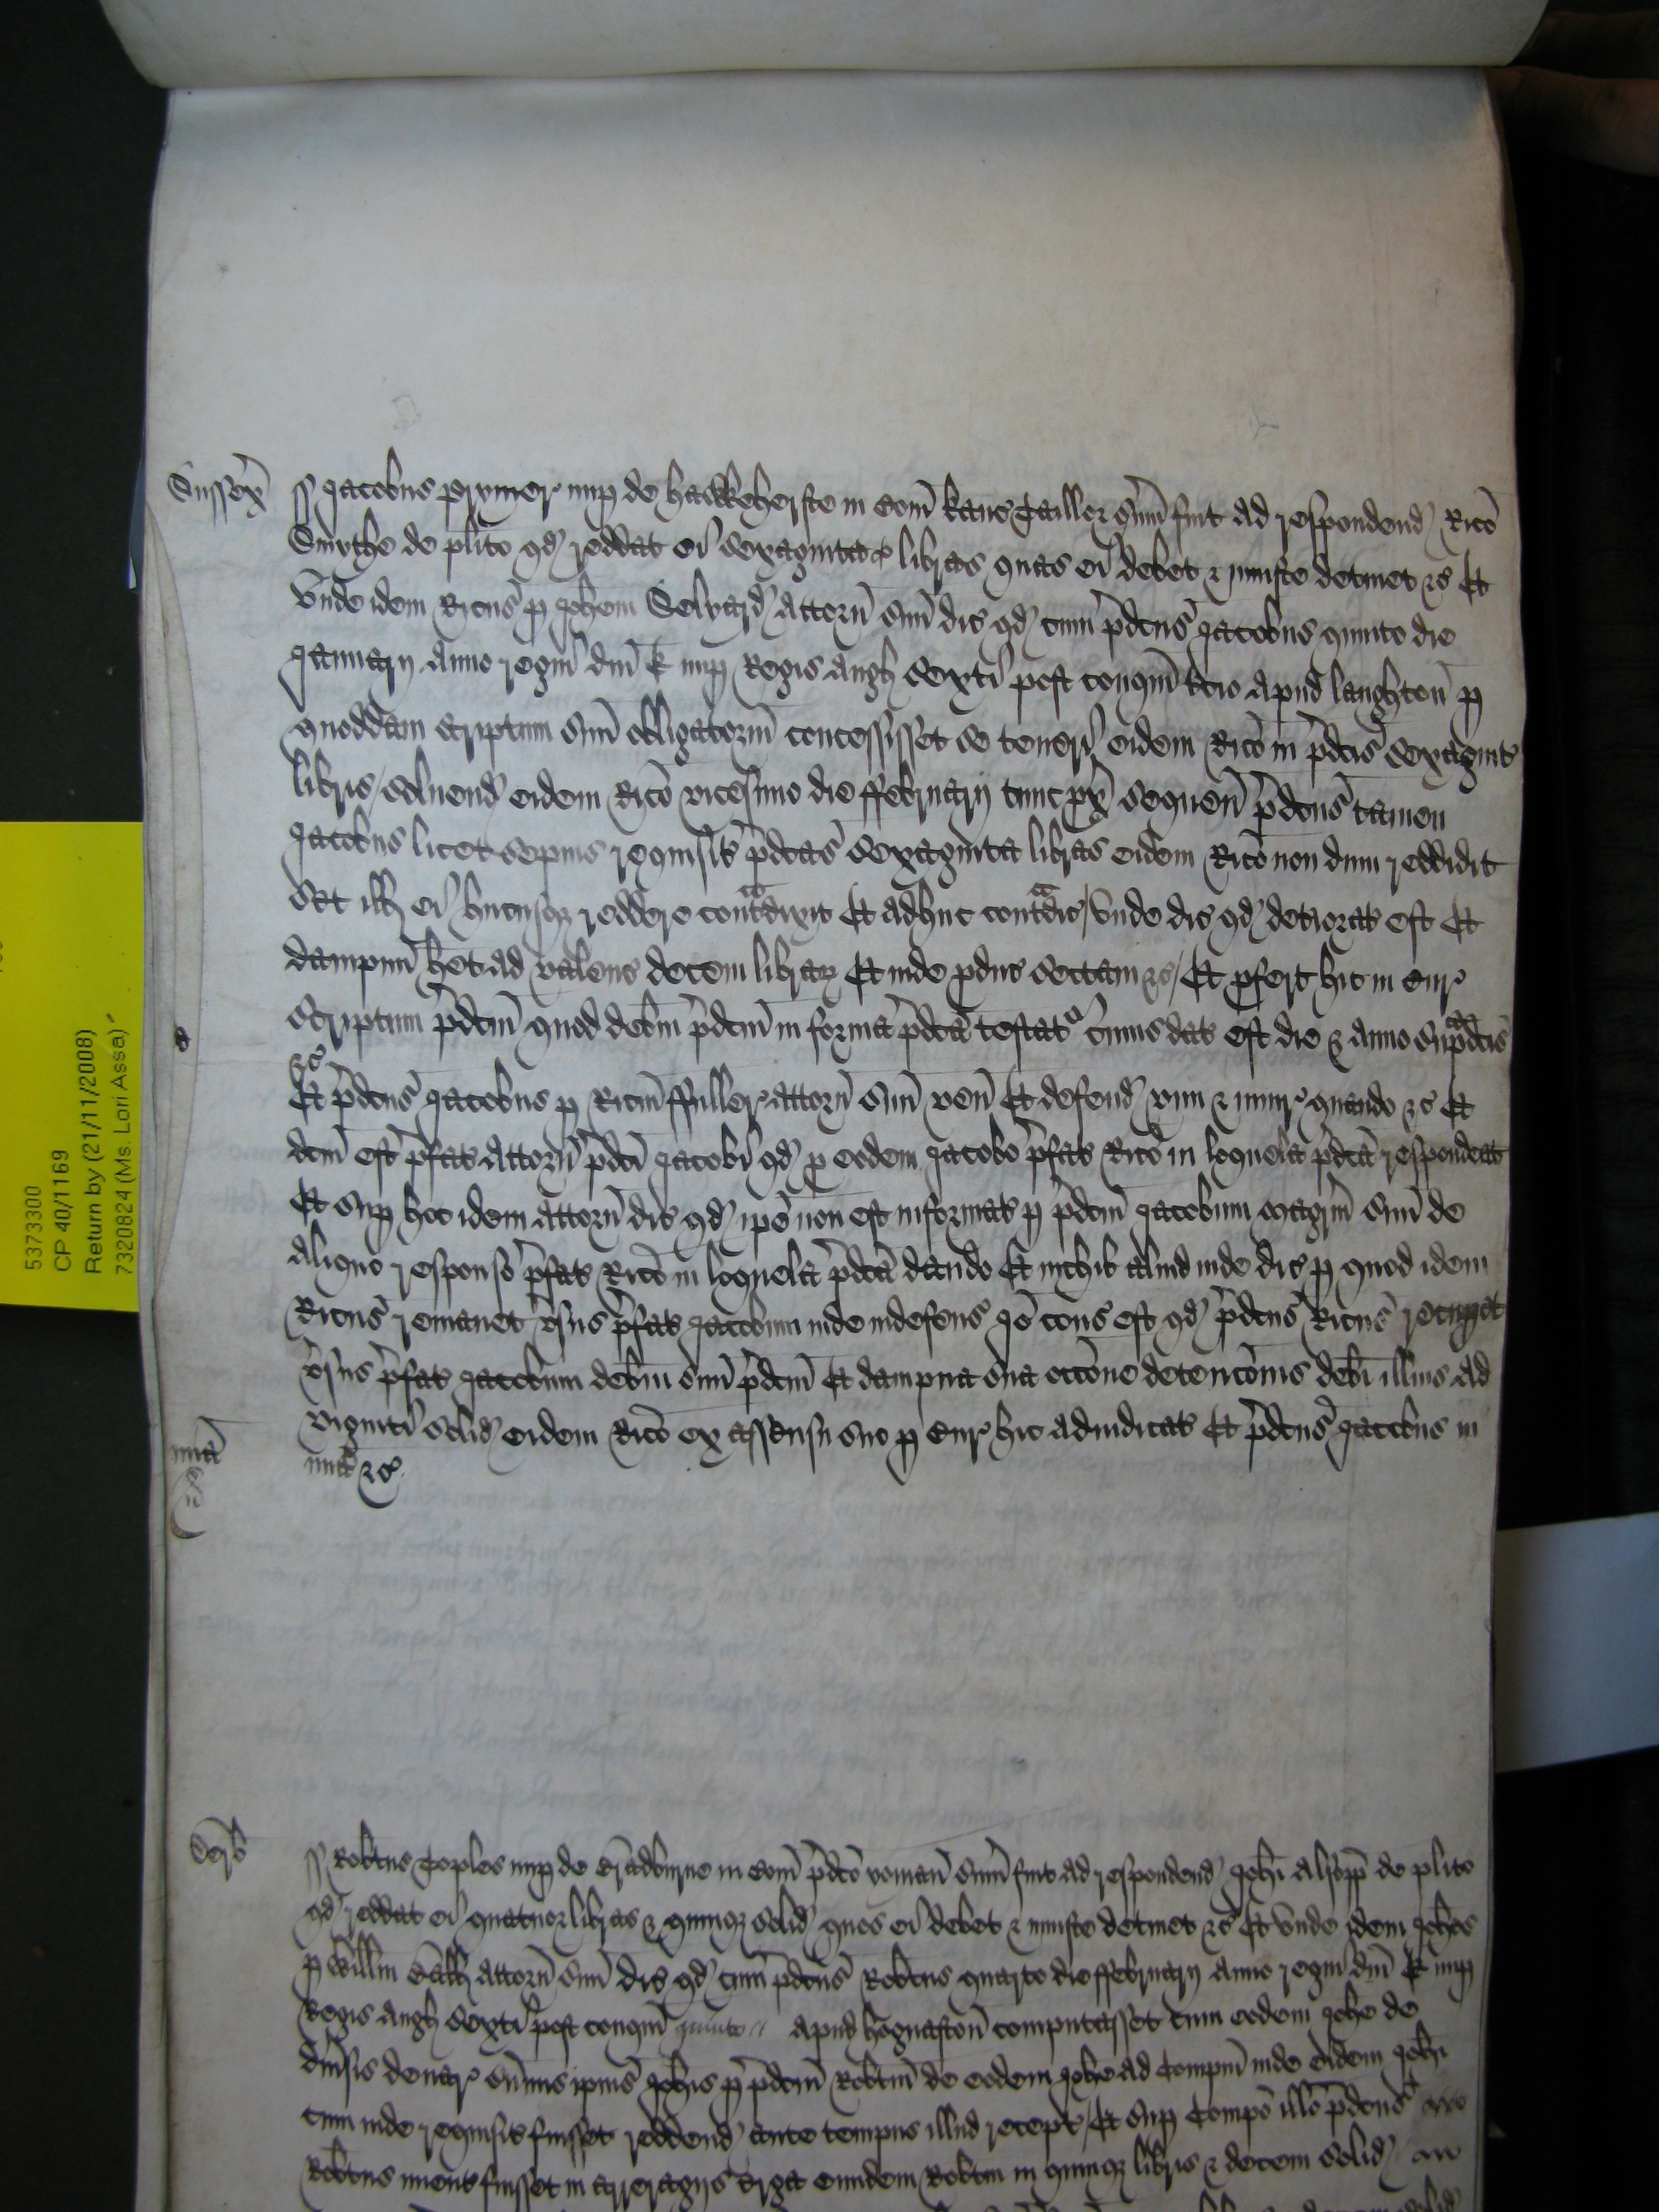 5373300
CP 40/1169
Return by (21/11/2008)
7320824 (Ms. Lori Assa)
Sussex
Jacobus Prymer nup de Hawkeherste in Com Kanc Tailler sum fuit ad respondend Rico
Smythe de plito qd reddat ei sexaginta libras quas ei debet & iniuste detinet &c Et
Unde idem Ricus p Johem Selyard Attorn suu dic qd cum pdcus Jacobus quinto die
Januarij Anno regni dni E nup Regis Angl sexti post conqm tcio apud Laughton p
quoddam scriptum suu obligatoriu concessisset se teneri eidem Rico in pdcis sexagint
libris solvend eidem Rico vicesimo die ffebruarij tunc px sequen pdcus tamen
Jacobus licet sepius requisit pdcas sexaginta libras eidem Rico non dum reddidit
set ill ei hucusq reddere contadixit Et adhuc contadic Unde dic qd detiorat est Et
dampnu het ad valenc decem librar Et inde pduc sectam &c Et pfert hic in Cur
scriptum pdcm quod debm pdcm in forma pdca testat cuius dat est die & anno supadcis
&c
Et pdcus Jacobus p Ricm ffuller Attorn suu ven Et defend vim & iniur quando &c Et
dcm est pfat Attorn pdci Jacobi qd p eodem Jacobo pfat Rico in loquela pdca respondeat
Et sup hoc idem Attorn dic qd ipe non est informat p pdcm Jacobum magrm suu de
aliquo responso pfat Rico in loquela pdca dando Et nichil aliud inde dic p quod idem
Ricus remanet vsus pfat Jacobum inde indefens Io cons est qd pdcus Ricus recupet
vsus pfat Jacobum debm suu pdcm Et dampna sua occone detencionis debi illius ad
viginti solid eidem Rico ex assensu suo p Cur hic adiudicat Et pdcus Jacobus in
mia
mia &c
Derb
Robtus Toples nup de Bradburne in Com pdco yoman sum fuit ad respondend Johi Alsopp de plito
qd reddat ei quatuor libras & quinq solid quos ei debet & iniuste detinet &c Et Unde idem Johes
p Willm attorn suu dic qd cum pdcus Robtus quarto die ffebruarij Anno regni dni E nup
Regis Angl sexti post conqm quinto apud Hognaston computasset cum eodem Johe de
divsis denar sumis ipius Johis p pdcm Robtm de eodem Johe ad Compm inde eidem Johi
cum inde requisit fuisset reddend ante tempus illud recept Et sup Compo illo pdcus
Robtus invent fuisset in arreragijs erga eundem Robtm in quinq libris & decem solid